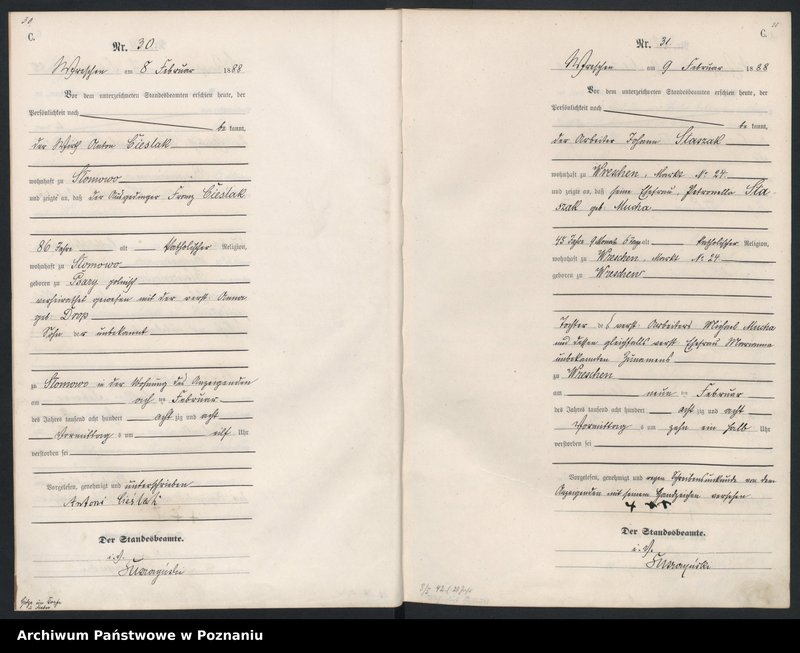 30.
C.
Nr. 30.
Wreschen am 8 Februar 1888
Vor dem unterzeichneten Standesbeamten erschien heute, der
Persönlichkeit nach
be kannt,
der Wirth Anton Cieslak
wohnhaft zu Slomowo
und zeigte an, daß der Ausgedinger Franz Cieslak
86 Jahre alt katholischer Religion,
wohnhaft zu Slomowo
geboren zu Psary polnisch
verheirathet gewesen mit der verst. Anna
geb. Drop
Sohn der unbekannt
zu Slomowo in der Wohnung des Anzeigenden
am acht ten Februar
des Jahres tausend acht hundert acht zig und acht
Vormittag s um eilf Uhr
verstorben sei
Vorgelesen, genehmigt und unterschrieben
Antoni Cieślak
Der Standesbeamte.
i. V.
31
C.
Nr. 31
Wreschen am 9 Februar 1888
Vor dem unterzeichneten Standesbeamten erschien heute, der
Persönlichkeit nach
be kannt,
der Arbeiter Johann Staszak
wohnhaft zu Wreschen, Markt No 24
und zeigte an, daß seine Ehefrau, Petronella Sta-
szak geb. Mucha
45 Jahre 9 Monate 6 Tage alt katholischer Religion,
wohnhaft zu Wreschen, Markt No 24
geboren zu Wreschen
Tochter des verst. Arbeiters Michael Mucha
und dessen gleichfalls verst Ehefrau Marianna
unbekannten Zunamens
zu Wreschen
am neun ten Februar
des Jahres tausend acht hundert acht zig und acht
Vormittag s um zehn ein halb Uhr
verstorben sei
Vorgelesen, genehmigt und wegen Schreibensunkunde von dem
Anzeigenden mit seinem Handzeichen versehen
+ + +
Der Standesbeamte.
i. V.
Archiwum Państwowe w Poznaniu